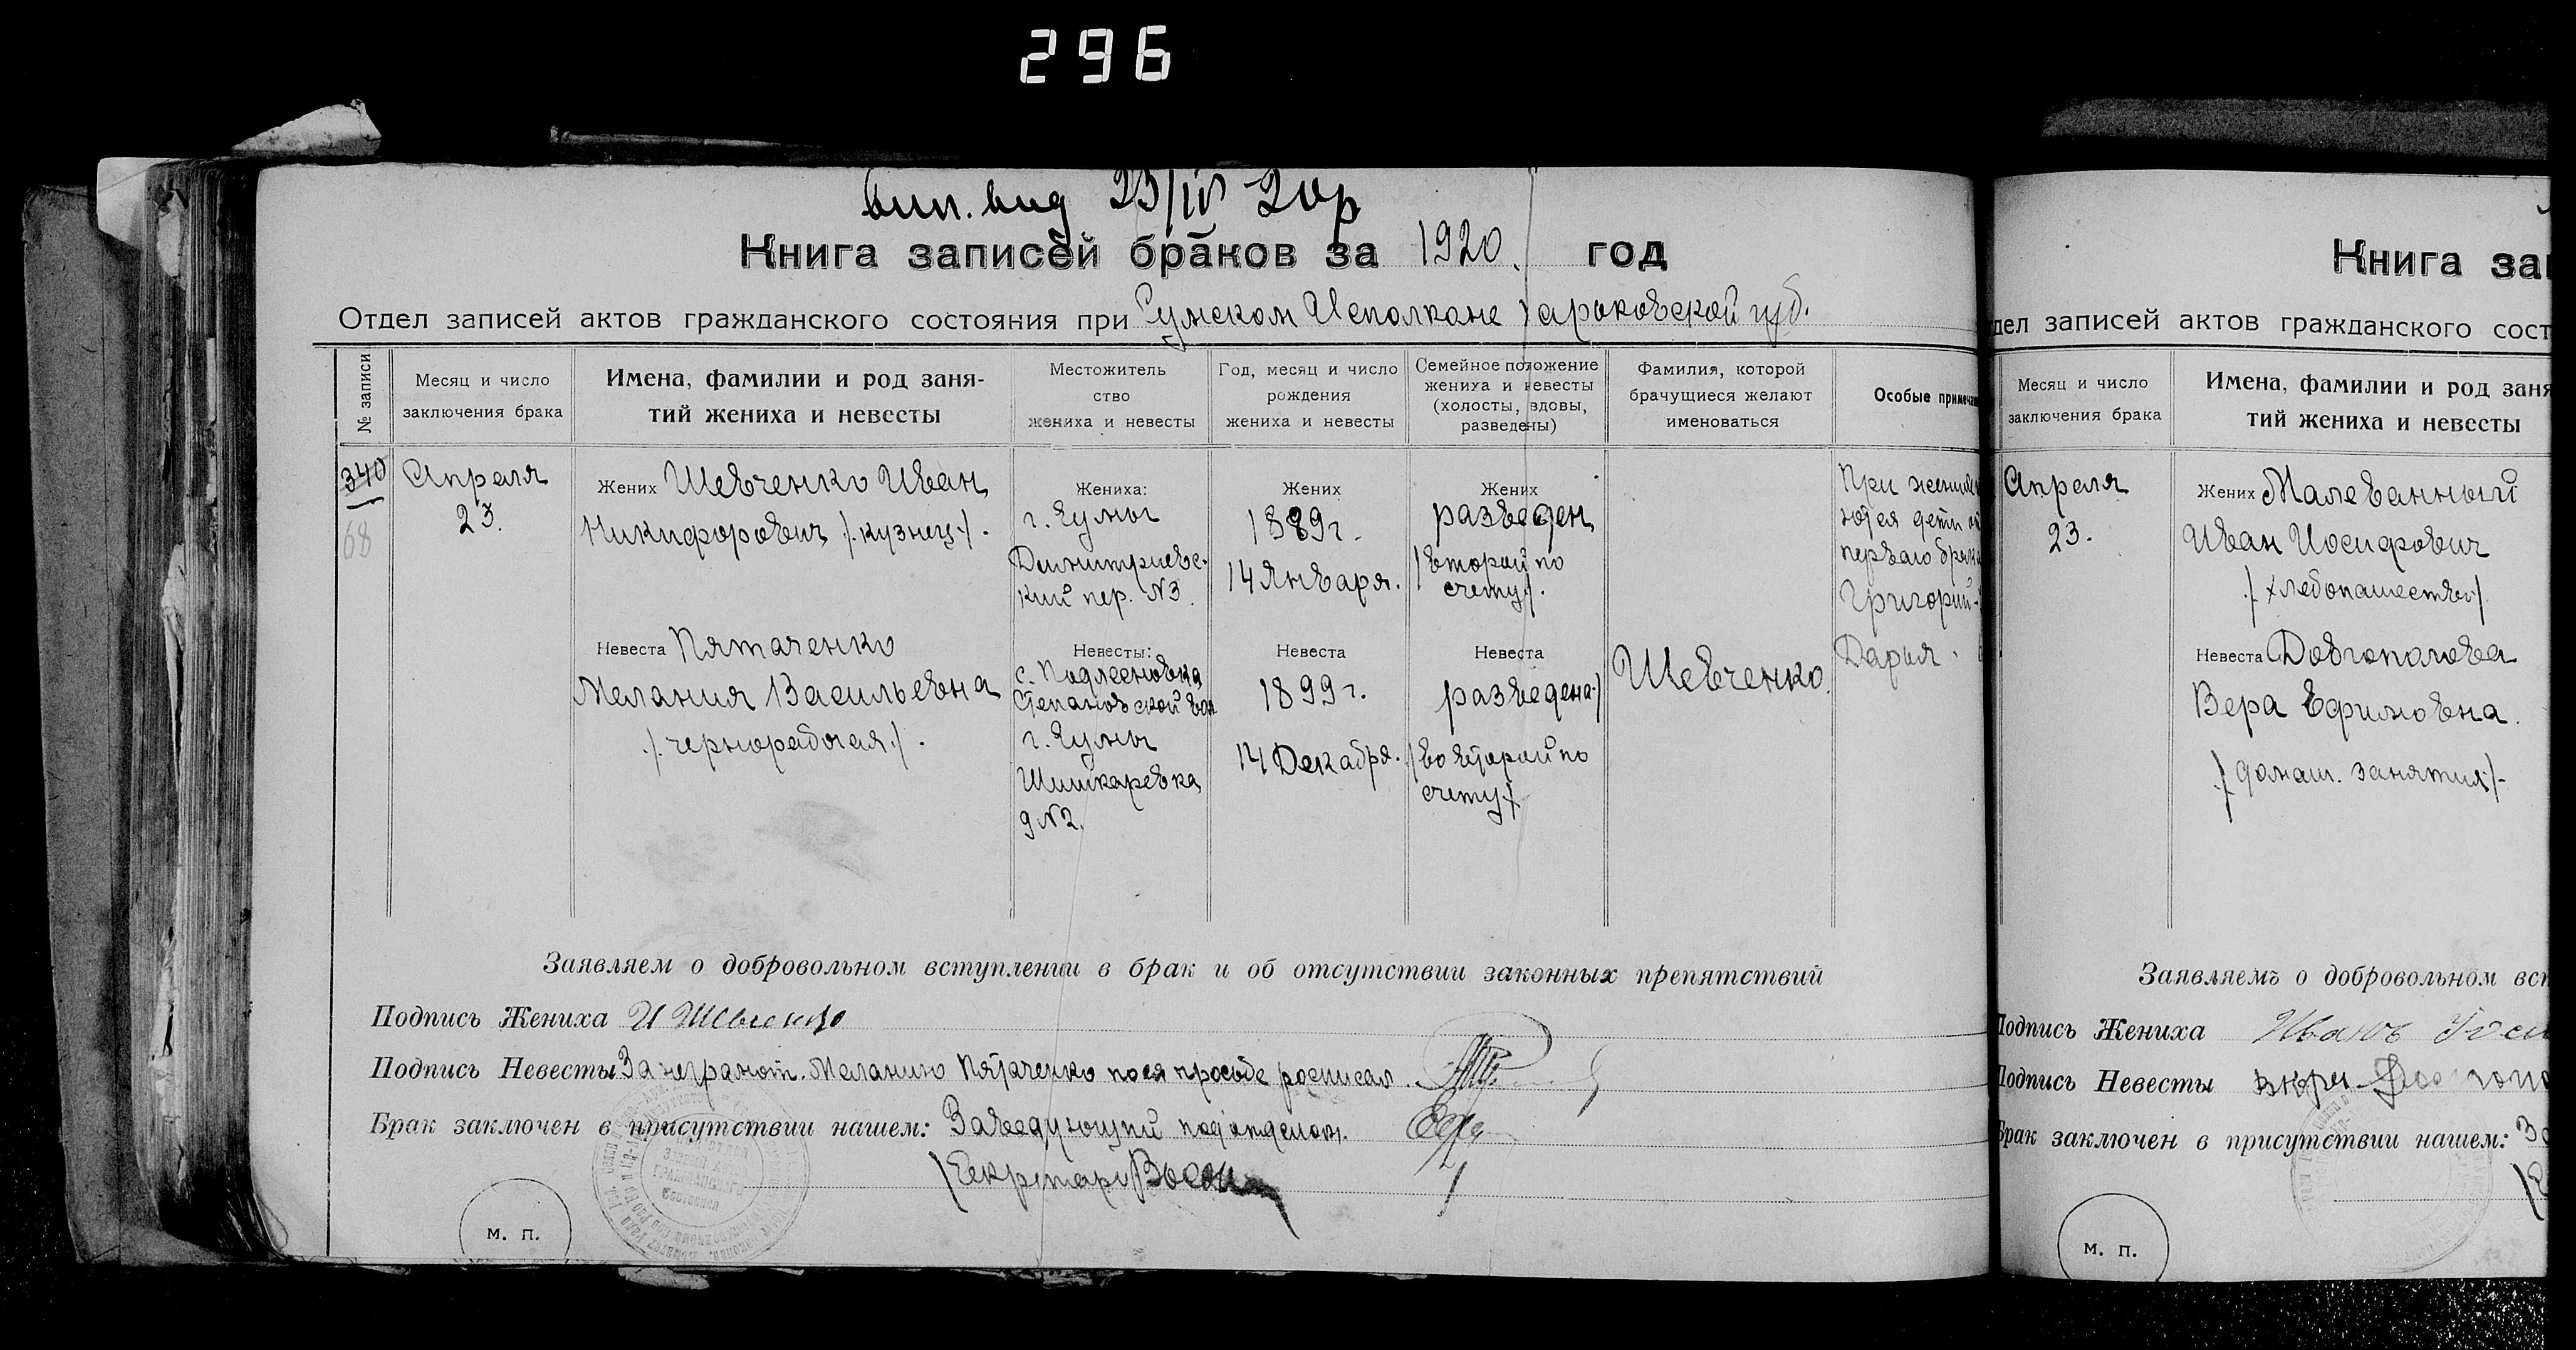 296
вип. вид 23/IV 20р
Книга записей браков за 1920. год
Отдел записей актов гражданского состояния при Сумском Исполкоме Харьковской губ.
№ записи
Месяц и число
заключения брака
Имена, фамилии и род заня-
тий жениха и невесты
Местожитель
ство
жениха и невесты
Год, месяц и число
рождения
жениха и невесты
Семейное положение
жениха и невесты
(холосты, вдовы,
разведены)
Фамилия, которой
брачущиеся желают
именоваться
Особые примеча
340
68
Апреля
23.
Жених Шевченко Иван
Никифорович /.кузнец./.
Невеста Пятаченко
Мелания Васильевна
/.чернорабочая./.
Жениха:
г. Сумы
Димитриевс-
кий пер. N3.
Невесты:
с. Подлесновка
Степановской вол
г. Сумы
Шишкаревка
д N2.
Жених
1889г.
14 Января.
Невеста
1899г.
14 Декабря.
Жених
разведен
/второй по
счету/.
Невеста
разведена./
/во второй по
счету/.
Шевченко.
При жених
ются дети от
перваго брака
Григорий-
Дария.
Заявляем о добровольном вступлении в брак и об отсутствии законных препятствий
Подпись Жениха И Шевченко
Подпись Невесты За неграмот. Меланию Пятаченко по ея просьбе росписал
Брак заключен в присутствии нашем: Заведующий подотделом.
/Секретарь
м. п.
Книга за
дел записей актов гражданского сост
Месяц и число
заключения брака
Имена, фамилии и род заня
тий жениха и невесты
Апреля
23.
Жених Малеванный
Иван Иосифович
/.хлебопашество./.
Невеста Довгополова
Вера Ефимовна.
/.домаш. занятия./-
Заявляемъ о добровольном вст
Подпись Жениха Иванъ
Подпись Невесты
Брак заключен в присутствии нашем: За
м. п.